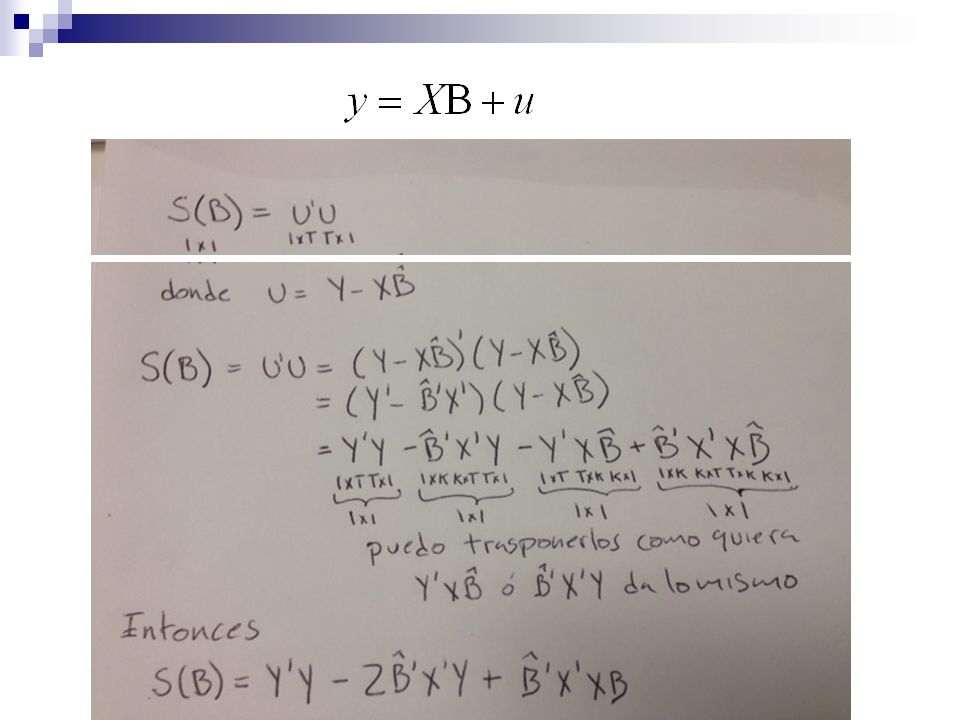 y = XB + u
S(B) = U'U
1x1 1xT Tx1
donde U = Y - XB̂
S(B) = U'U = (Y - XB̂)'(Y - XB̂)
= (Y' - B̂'X')(Y - XB̂)
= Y'Y - B̂'X'Y - Y'XB̂ + B̂'X'XB̂
1xT Tx1 1xK KxT Tx1 1xT TxK Kx1 1xK KxT TxK Kx1
1x1 1x1 1x1 1x1
puedo trasponerlos como quiera
Y'XB̂ ó B̂'X'Y da lo mismo
Entonces
S(B) = Y'Y - 2B̂'X'Y + B̂'X'XB